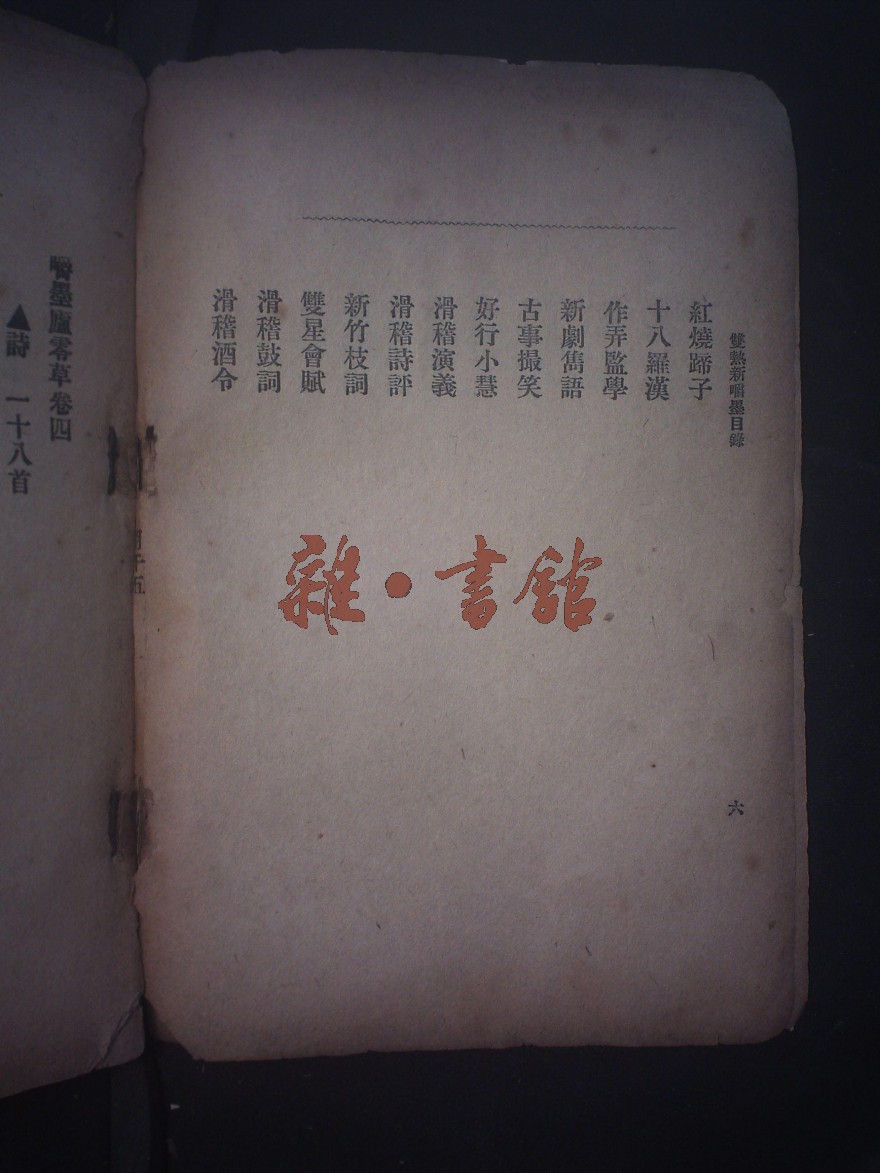 雙熱新嚼墨目錄
紅燒蹄子
十八羅漢
作弄監學
新劇雋語
古事撮笑
好行小慧
滑稽演義
滑稽詩評
新竹枝詞
雙星會賦
滑稽鼓詞
滑稽酒令
六
嚼墨廬零草卷四
▲詩 一十八首
雜·書館